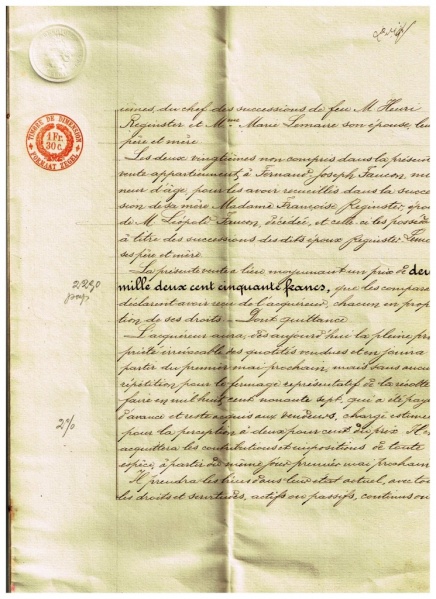 TIMBRE DE DIMENSION
1 Fr.
30 c.
FORMAT
ièmes, du chef des successions de feu M Henri
Reginster et M.me Marie Lemaire son épouse, leu
père et mère
Les deux vingtièmes non compris dans la présent
vente appartiennent à Fernand Joseph Faucon, mi
neur d'âge, pour les avoir recueillis dans la succes
sion de sa mère Madame Françoise Reginster, épou
de M. Léopold Faucon, décédée, et celle-ci les possédai
à titre des successions des dits époux Reginster Lema
ses père et mère
La présente vente a lieu moyennant un prix de deux
mille deux cent cinquante francs, que les compara
déclarent avoir reçu de l'acquéreur, chacun en propor
tion de ses droits – Dont quittance
2250
L'acquéreur aura, dès aujourd'hui la pleine pro
priété irrévocable des quotités vendues et en jouira
partir du premier mai prochain, mais sans aucu
répétition pour le fermage représentatif de la récolte
faire en mil huit cent nonante sept, qui a été payé
d'avance et reste acquis aux vendeurs, charge estimée
pour la perception à deux pour cent du prix. Il en
acquittera les contributions et impositions de toute
espèce, à partir du même jour premier mai prochain
2%
Il prendra les biens dans leur état actuel, avec tou
les droits et servitudes, actifs ou passifs, continus ou